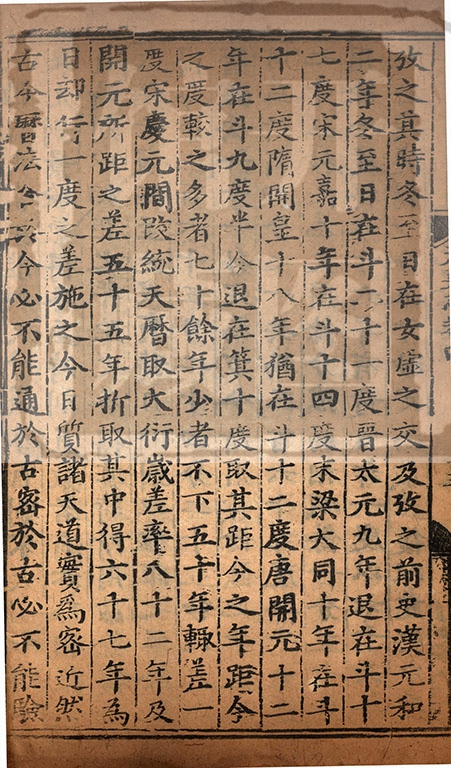 攷之眞時冬至日在女虛之交及攷之前史漢元和
二年冬至日在斗二十一度晉太元九年退在斗十
七度宋元嘉十年在斗十四度末梁大同十年在斗
十二度隋開皇十八年猶在斗十二度唐開元十二
年在斗九度半今退在箕十度取其距今之年距今
之度較之多者七十餘年少者不下五十年輒差一
度宋慶元間改統天曆取大衍歲差率八十二年及
開元所距之差五十五年折取其中得六十七年為
日却行一度之差施之今日質諸天道實為密近然
古今曆法合於今必不能通於古密於古必不能驗